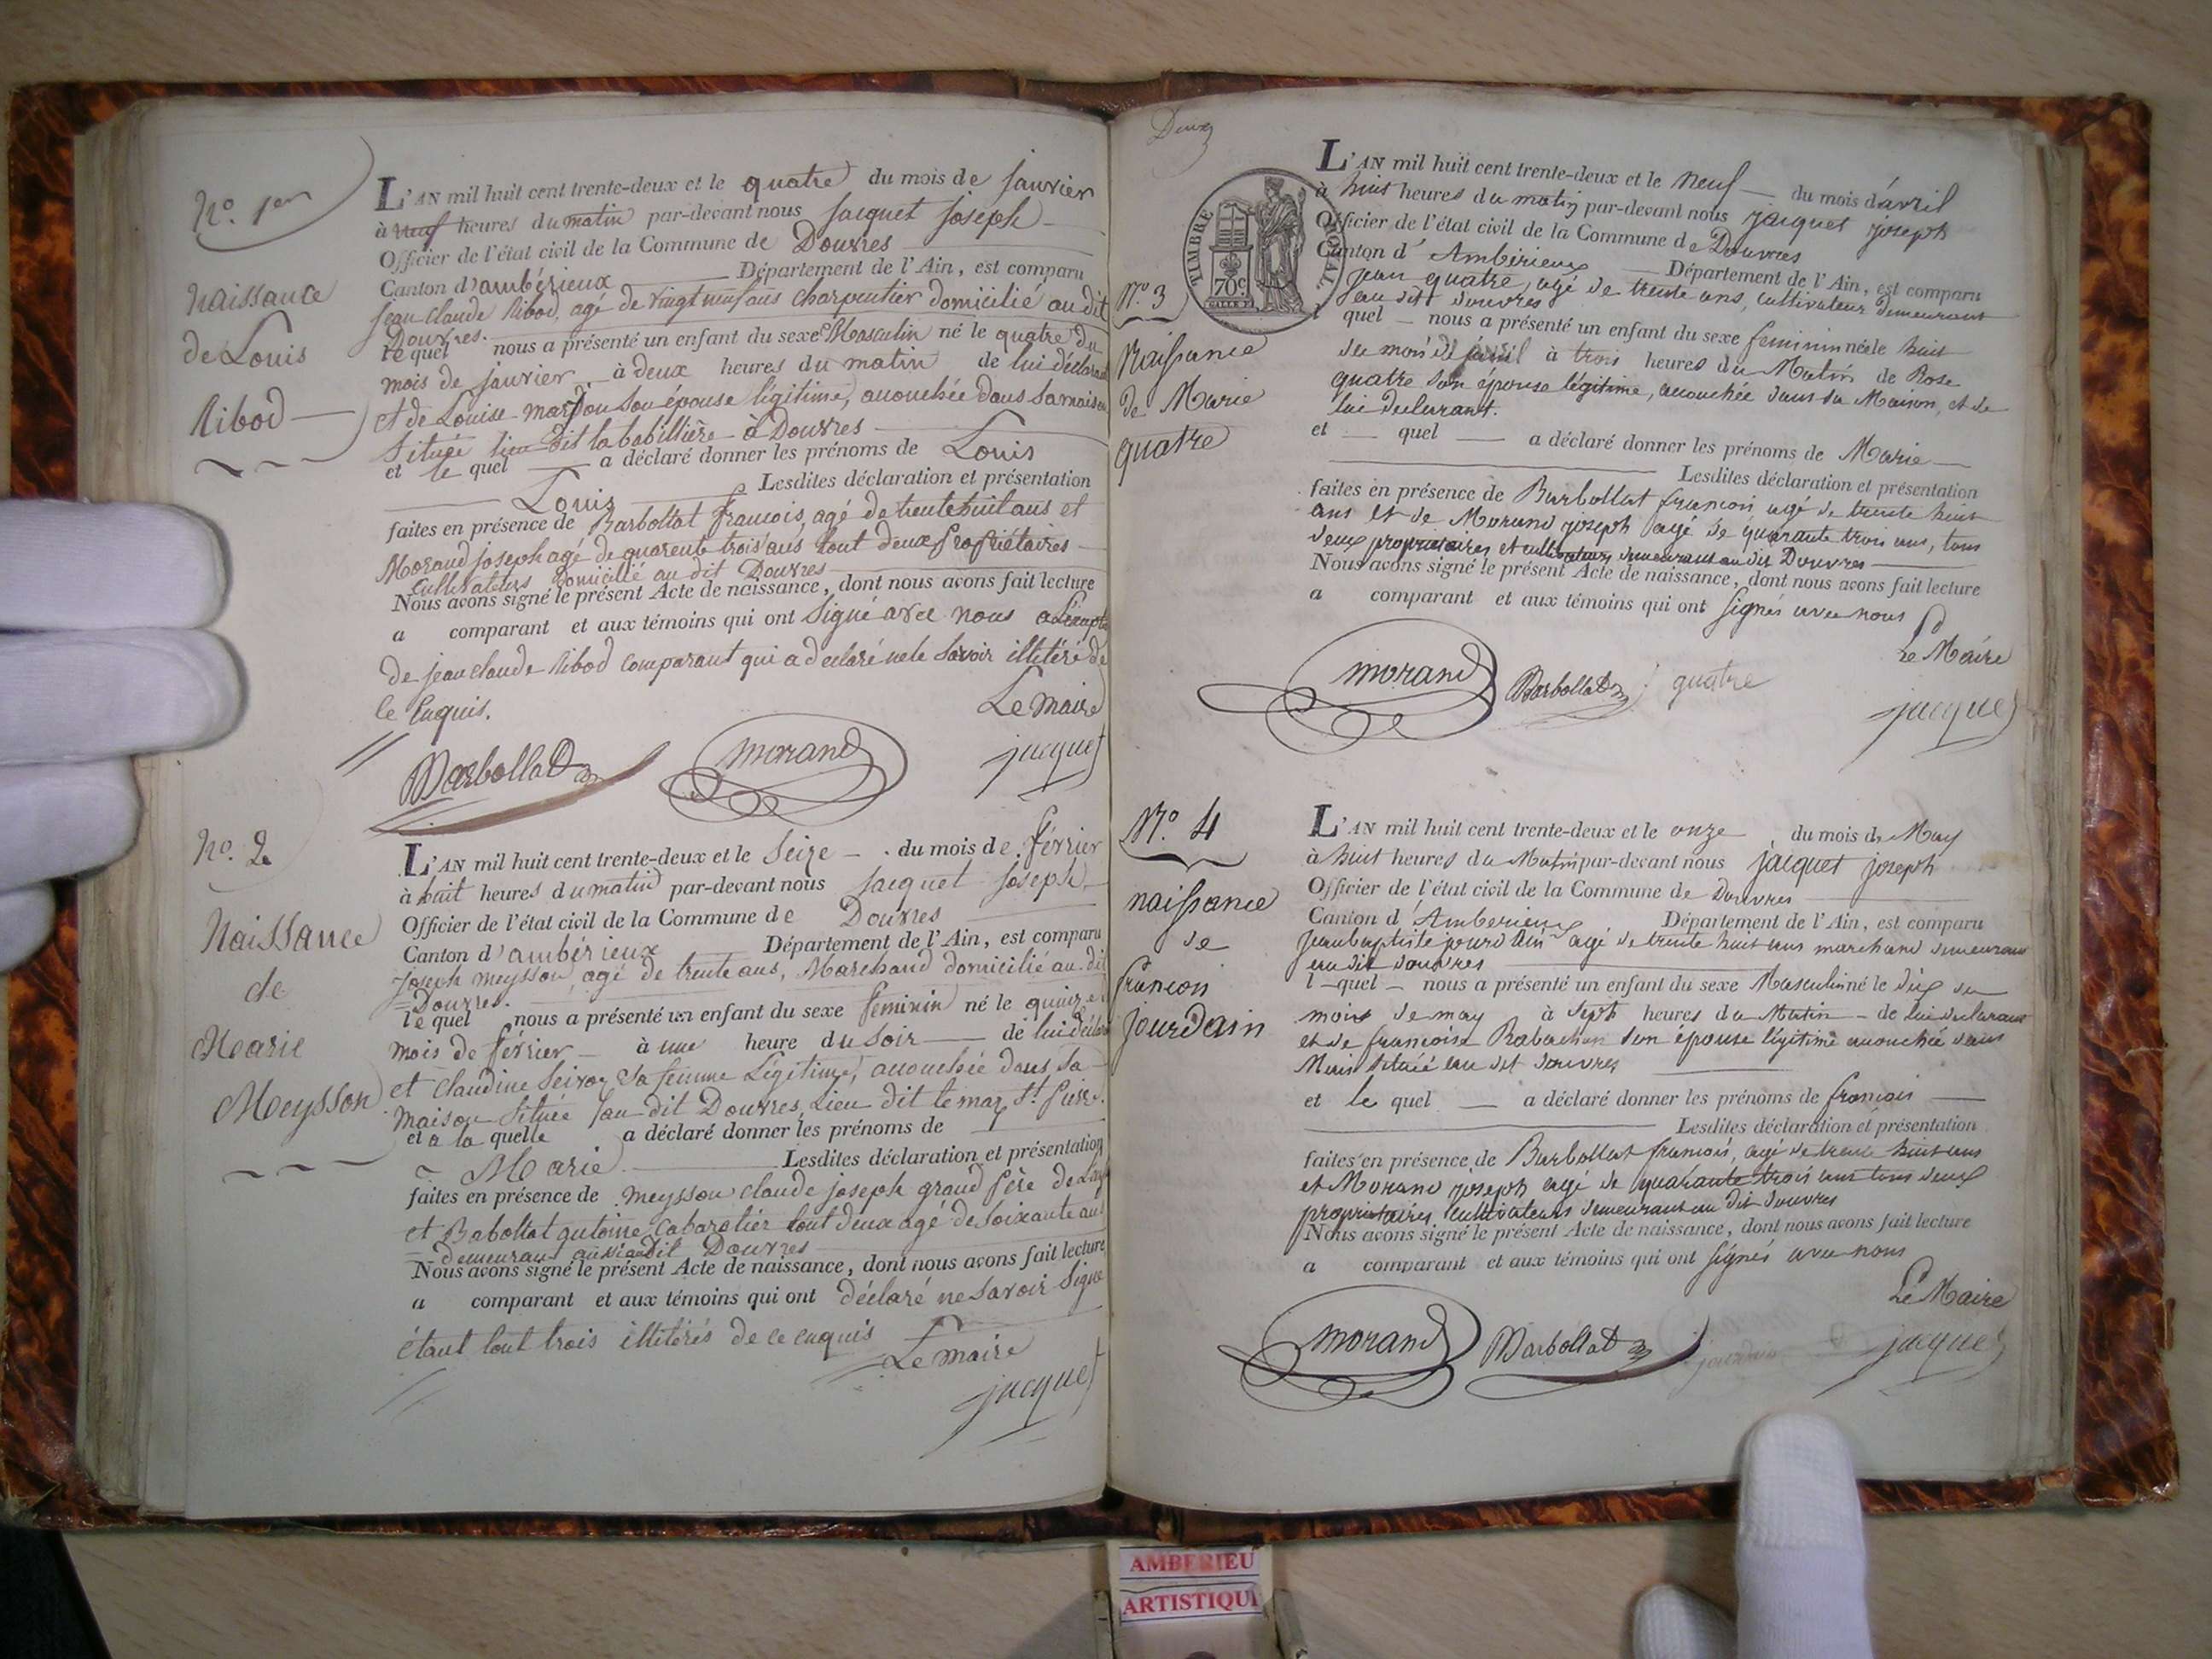 N.º 1er
Naissance
de Louis
Ribod
L'AN mil huit cent trente-deux et le quatre du mois de janvier
à neuf heures du matin par-devant nous Jacquet Joseph
Officier de l'état civil de la Commune de Douvres
Canton d'ambérieux Département de l'Ain, est comparu
jean claude Ribod, agé de vingt neuf ans charpentier domicilié au dit
Douvres.
le quel nous a présenté un enfant du sexe Masculin né le quatre du
mois de janvier à deux heures du matin de lui déclarant
et de Louise son épouse légitime, accouchée dans sa maison
Située lieu dit la babillière à Douvres
et le quel a déclaré donner les prénoms de Louis
Louis Lesdites déclaration et présentation
faites en présence de Barbollat francois, agé de trente huit ans et
Morand joseph agé de quarente trois ans tout deux propriétaires
Cultivateurs domicillé au dit Douvres
Nous avons signé le présent Acte de naissance, dont nous avons fait lecture
a comparant et aux témoins qui ont Signé avec nous
de jean claude Ribod comparant qui a declaré ne le savoir illitéré de
le enquis.
Le maire
Barbollat morand jacquet
N.º 2
Naissance
de
Marie
Meysson
L'AN mil huit cent trente-deux et le Seize du mois de février
à huit heures du matin par-devant nous Jacquet Joseph
Officier de l'état civil de la Commune de Douvres
Canton d'ambérieux Département de l'Ain, est comparu
Joseph meysson, agé de trente ans, Marchand domicilié au dit
Douvres.
le quel nous a présenté un enfant du sexe feminin né le quinze
mois de février à une heure du soir de lui déclarant
et claudine sa femme Légitime, accouchée dans sa
maison située au dit Douvres, Lieu dit le St. pierre.
et a la quelle a déclaré donner les prénoms de
Marie Lesdites déclaration et présentation
faites en présence de meysson claude joseph grand père de
et Babollat antoine Cabaretier tout deux agé de soixante ans
demeurant dit Douvres
Nous avons signé le présent Acte de naissance, dont nous avons fait lecture
a comparant et aux témoins qui ont déclaré ne savoir signe
étant tout trois illitérés de ce enquis
Le maire
jacquet
Deux
TIMBRE ROYAL
70c
N.º 3
Naissance
de Marie
quatre
L'AN mil huit cent trente-deux et le neuf du mois d'avril
à huit heures du matin par-devant nous jacquet joseph
Officier de l'état civil de la Commune de Douvres
Canton d'Ambérieux Département de l'Ain, est comparu
jean quatre, agé de trente ans, cultivateur demeurant
au dit douvres
quel nous a présenté un enfant du sexe feminin née le huit
du mois d'avril à trois heures du Matin de Rose
quatre son épouse légitime, accouchée dans sa Maison, et de
lui declarant.
et quel a déclaré donner les prénoms de Marie
Lesdites déclaration et présentation
faites en présence de Barbollat francois agé de trente huit
ans et de Morand joseph agé de quarante trois ans, tous
deux propriétaires et cultivateurs demeurant au dit Douvres
Nous avons signé le présent Acte de naissance, dont nous avons fait lecture
a comparant et aux témoins qui ont signés avec nous
Le Maire
morand Barbollat quatre jacquet
N.º 4
naissance
de
francois
jourdain
L'AN mil huit cent trente-deux et le onze du mois de May
à huit heures du Matin par-devant nous jacquet joseph
Officier de l'état civil de la Commune de Douvres
Canton d'Amberieux Département de l'Ain, est comparu
jean baptiste jourdain agé de trente huit ans marchand demeurant
au dit douvres
l quel nous a présenté un enfant du sexe Masculin né le dix du
mois de may à sept heures du Matin de lui declarant
et de françoise son épouse légitime accouchée dans
située au dit douvres
et le quel a déclaré donner les prénoms de francois
Lesdites déclaration et présentation
faites en présence de Barbollat francois, agé de trente huit ans
et Morand joseph agé de quarante trois ans tous deux
propriétaires cultivateurs demeurant au dit douvres
Nous avons signé le présent Acte de naissance, dont nous avons fait lecture
a comparant et aux témoins qui ont signés avec nous
Le Maire
morand Barbollat jourdain jacquet
AMBERIEU
ARTISTIQUE